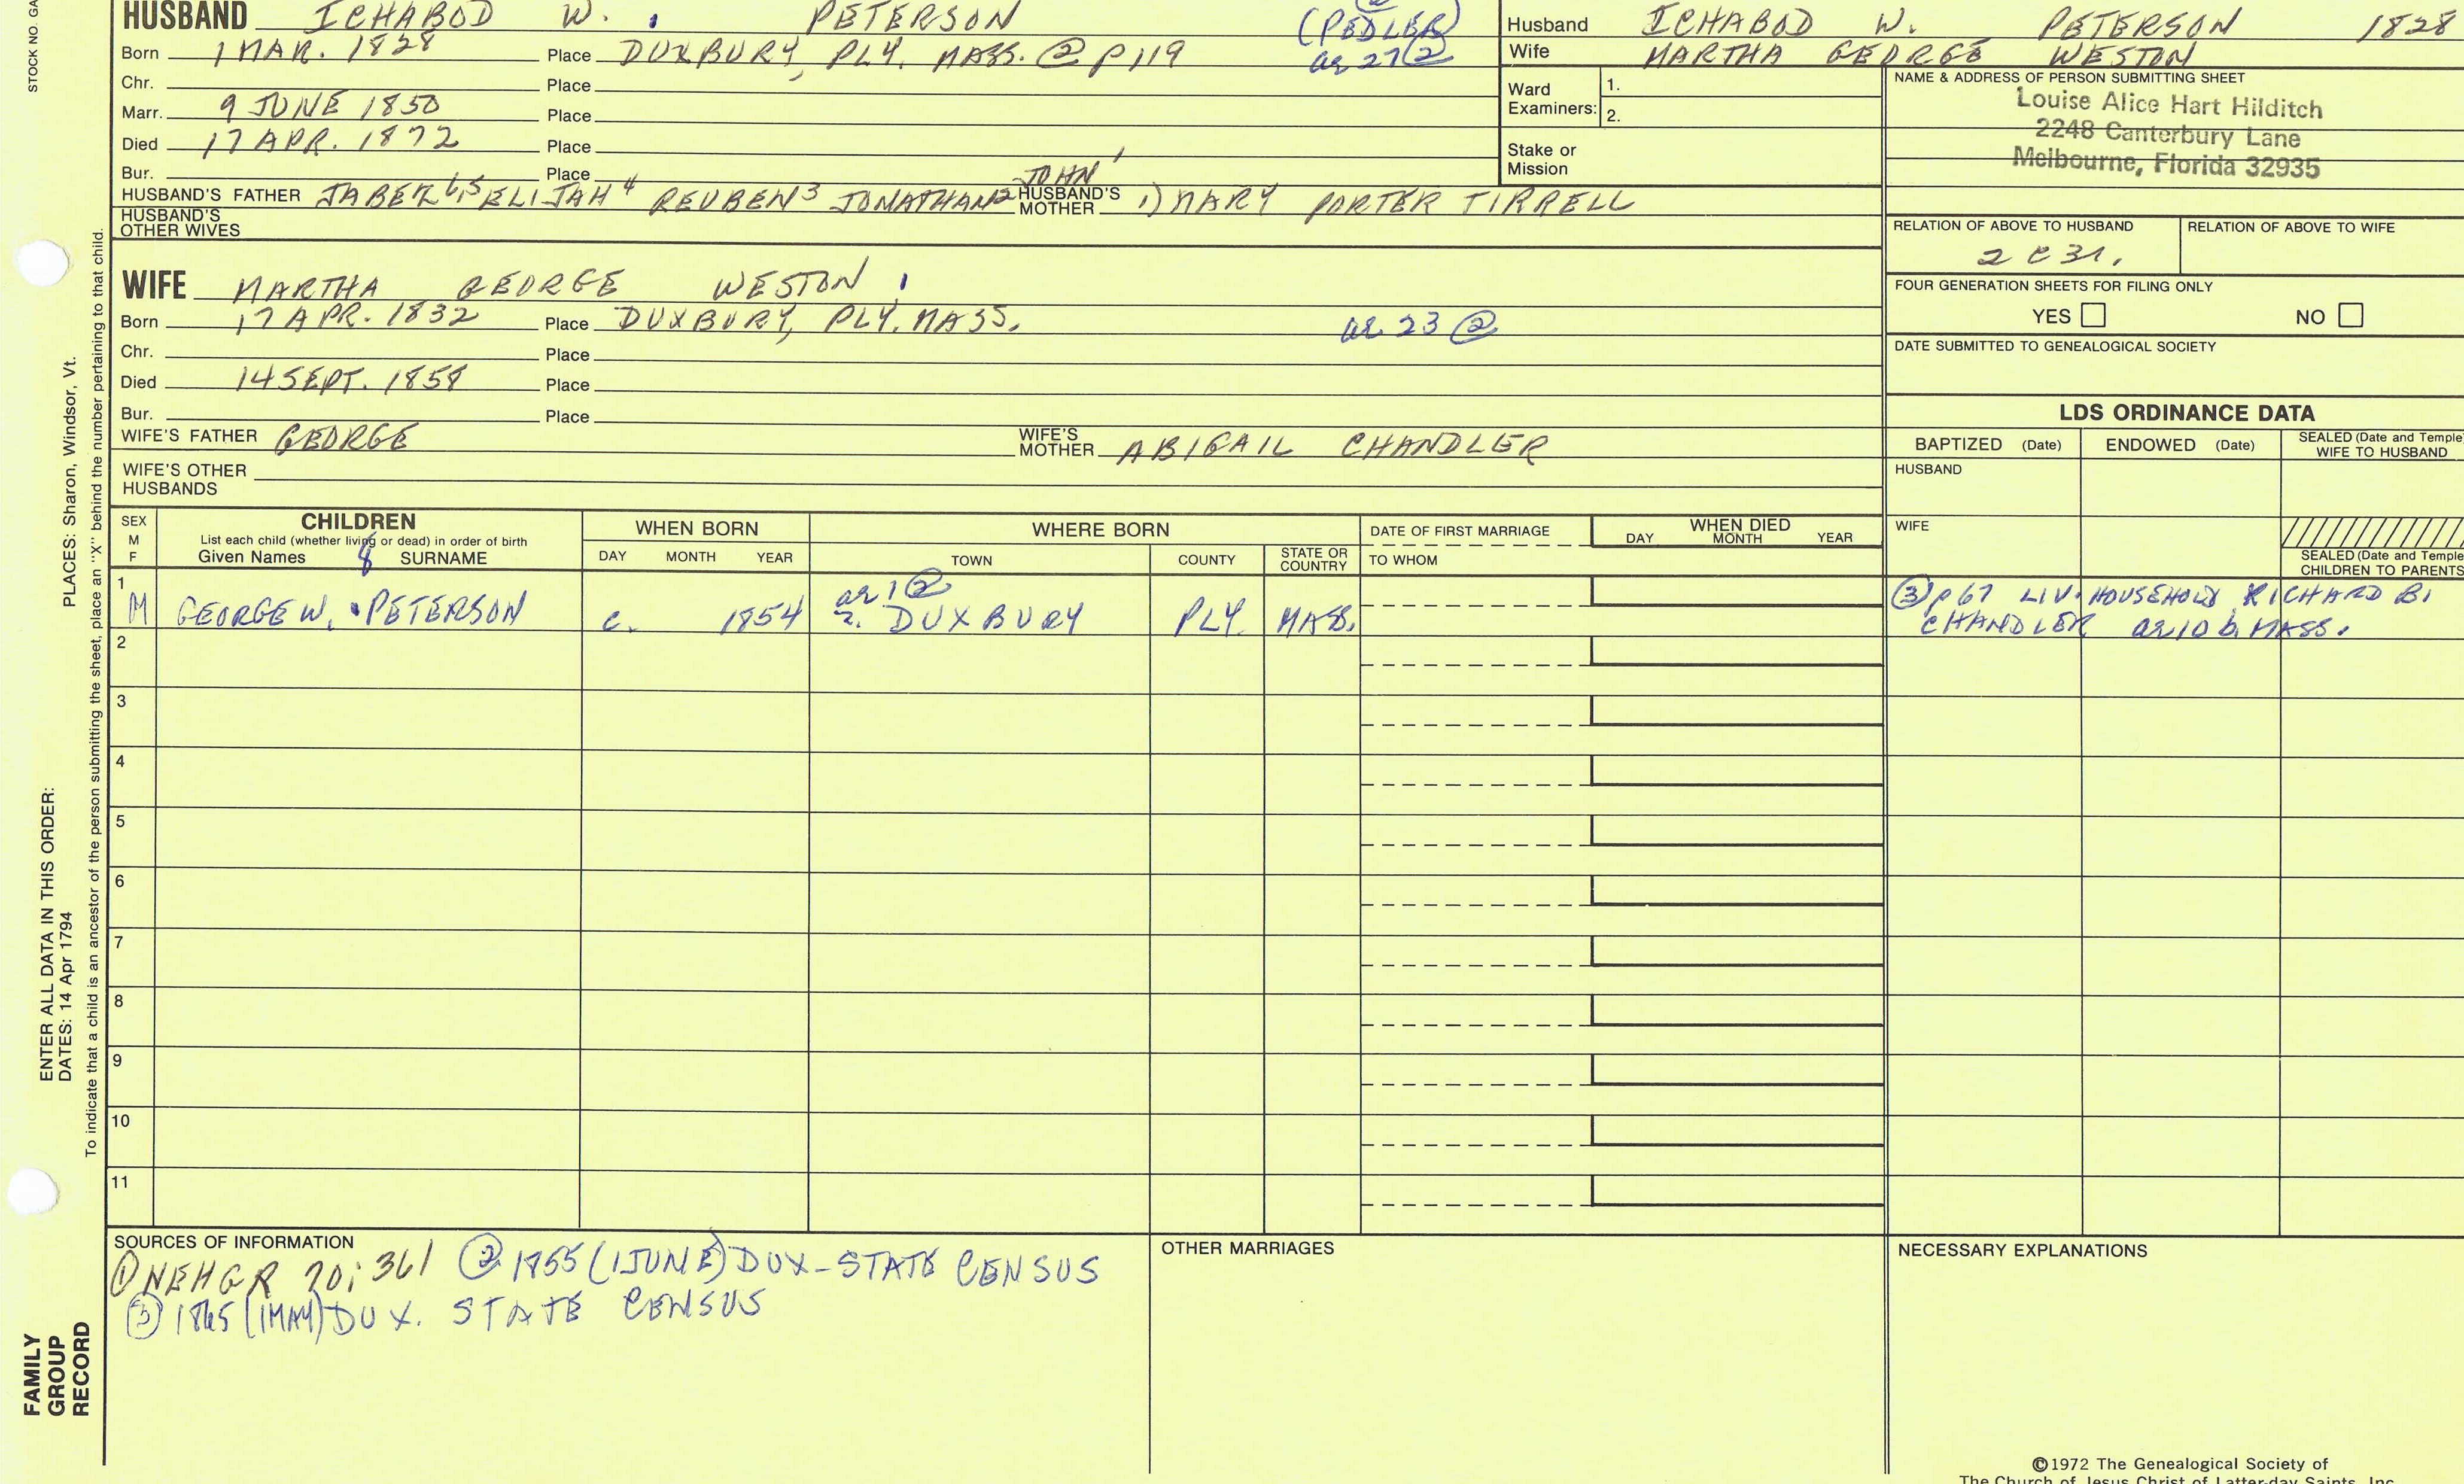 HUSBAND ICHABOD W. PETERSON (PEDLER)
Born 1 MAR. 1828 Place DUXBURY, PLY. MASS. @ p 119 ae 27 ②
Chr. Place
Marr. 9 JUNE 1850 Place
Died 17 APR. 1872 Place
Bur. Place
HUSBAND'S FATHER JABEZ 6,5 ELIJAH 4 REUBEN 3 JONATHAN 2 JOHN 1 HUSBAND'S MOTHER 1) MARY PORTER TIRRELL
HUSBAND'S OTHER WIVES
WIFE MARTHA GEORGE WESTON
Born 17 APR. 1832 Place DUXBURY, PLY. MASS. ae 23 ②
Chr. Place
Died 14 SEPT. 1858 Place
Bur. Place
WIFE'S FATHER GEORGE WIFE'S MOTHER ABIGAIL CHANDLER
WIFE'S OTHER HUSBANDS
Husband ICHABOD W. PETERSON 1828
Wife MARTHA GEORGE WESTON
Ward Examiners: 1.
2.
Stake or Mission
NAME & ADDRESS OF PERSON SUBMITTING SHEET
Louise Alice Hart Hilditch
2248 Canterbury Lane
Melbourne, Florida 32935
RELATION OF ABOVE TO HUSBAND RELATION OF ABOVE TO WIFE
2 C 3 r.
FOUR GENERATION SHEETS FOR FILING ONLY
YES NO
DATE SUBMITTED TO GENEALOGICAL SOCIETY
LDS ORDINANCE DATA
BAPTIZED (Date) ENDOWED (Date) SEALED (Date and Temple) WIFE TO HUSBAND
HUSBAND
WIFE
SEALED (Date and Temple) CHILDREN TO PARENTS
SEX M F
CHILDREN
List each child (whether living or dead) in order of birth
Given Names SURNAME
WHEN BORN
DAY MONTH YEAR
WHERE BORN
TOWN COUNTY STATE OR COUNTRY
DATE OF FIRST MARRIAGE
TO WHOM
WHEN DIED
DAY MONTH YEAR
1 ae 1 ②
M GEORGE W. PETERSON c. 1854 DUXBURY PLY. MASS.
③ p 67 LIV. HOUSEHOLD RICHARD B.
CHANDLER ae 10 b. MASS.
2
3
4
5
6
7
8
9
10
11
SOURCES OF INFORMATION
① NEHGR 70; 361 ② 1855 (1 JUNE) DUX-STATE CENSUS
③ 1865 (1 MAY) DUX. STATE CENSUS
OTHER MARRIAGES
NECESSARY EXPLANATIONS
©1972 The Genealogical Society of
The Church of Jesus Christ of Latter-day Saints, Inc.
STOCK NO. GA
PLACES: Sharon, Windsor, Vt.
To indicate that a child is an ancestor of the person submitting the sheet, place an "X" behind the number pertaining to that child.
ENTER ALL DATA IN THIS ORDER:
DATES: 14 Apr 1794
FAMILY
GROUP
RECORD